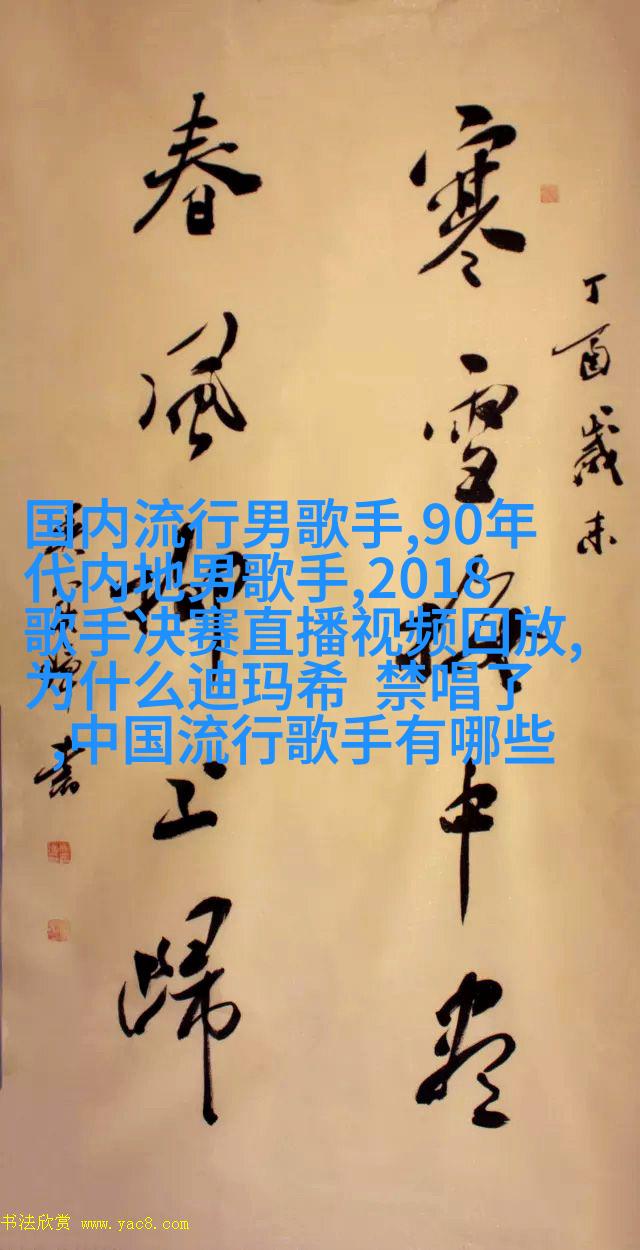 丁酉歲末
寒雪梅中盡
春風柳上歸
国内流行男歌手,90年
代内地男歌手,2018
歌手决赛直播视频回放,
为什么迪玛希 禁唱了
,中国流行歌手有哪些
书法欣赏 www.yac8.com